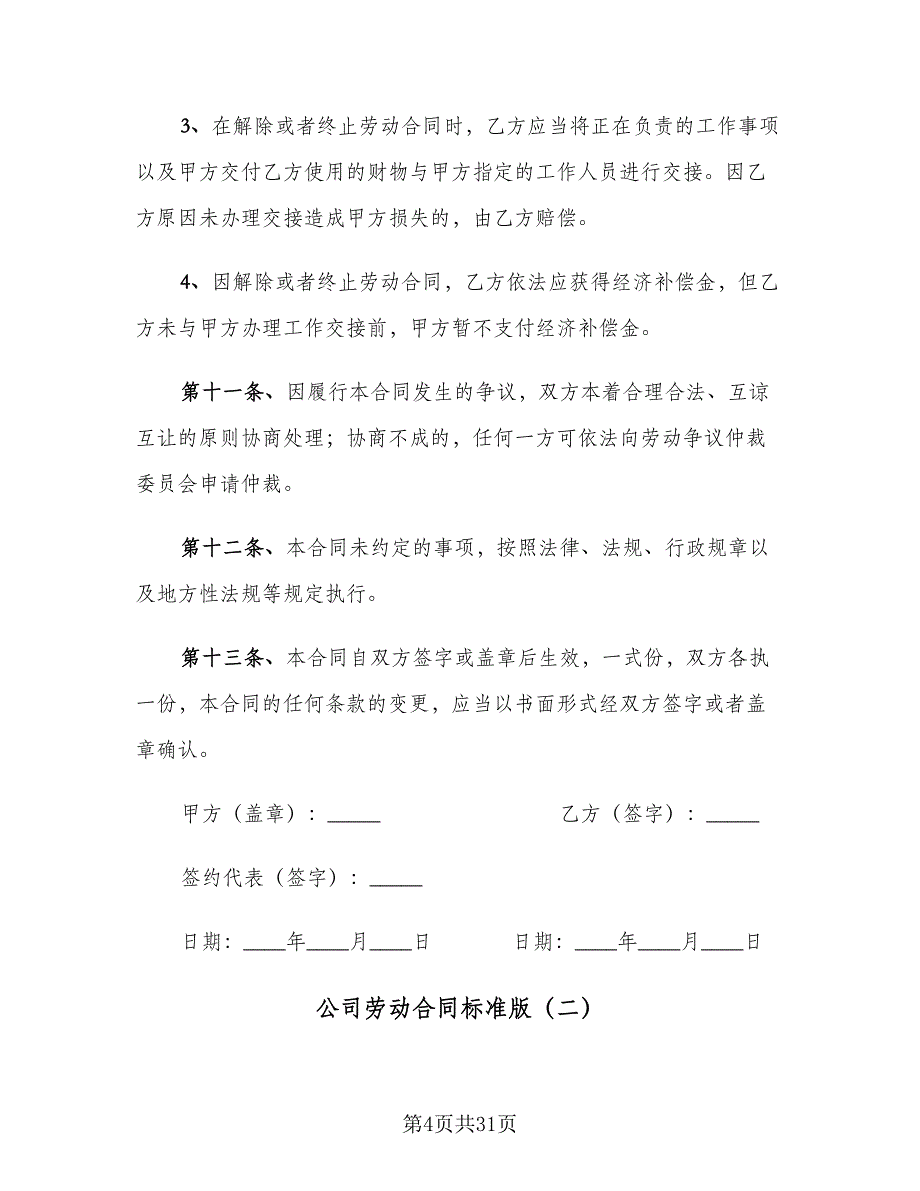 3、在解除或者终止劳动合同时，乙方应当将正在负责的工作事项
以及甲方交付乙方使用的财物与甲方指定的工作人员进行交接。因乙
方原因未办理交接造成甲方损失的，由乙方赔偿。
4、因解除或者终止劳动合同，乙方依法应获得经济补偿金，但乙
方未与甲方办理工作交接前，甲方暂不支付经济补偿金。
第十一条、因履行本合同发生的争议，双方本着合理合法、互谅
互让的原则协商处理；协商不成的，任何一方可依法向劳动争议仲裁
委员会申请仲裁。
第十二条、本合同未约定的事项，按照法律、法规、行政规章以
及地方性法规等规定执行。
第十三条、本合同自双方签字或盖章后生效，一式份，双方各执
一份，本合同的任何条款的变更，应当以书面形式经双方签字或者盖
章确认。
甲方（盖章）：_____ 乙方（签字）：_____
签约代表（签字）：_____
日期：____年____月____日 日期：____年____月____日
公司劳动合同标准版（二）
第4页共31页